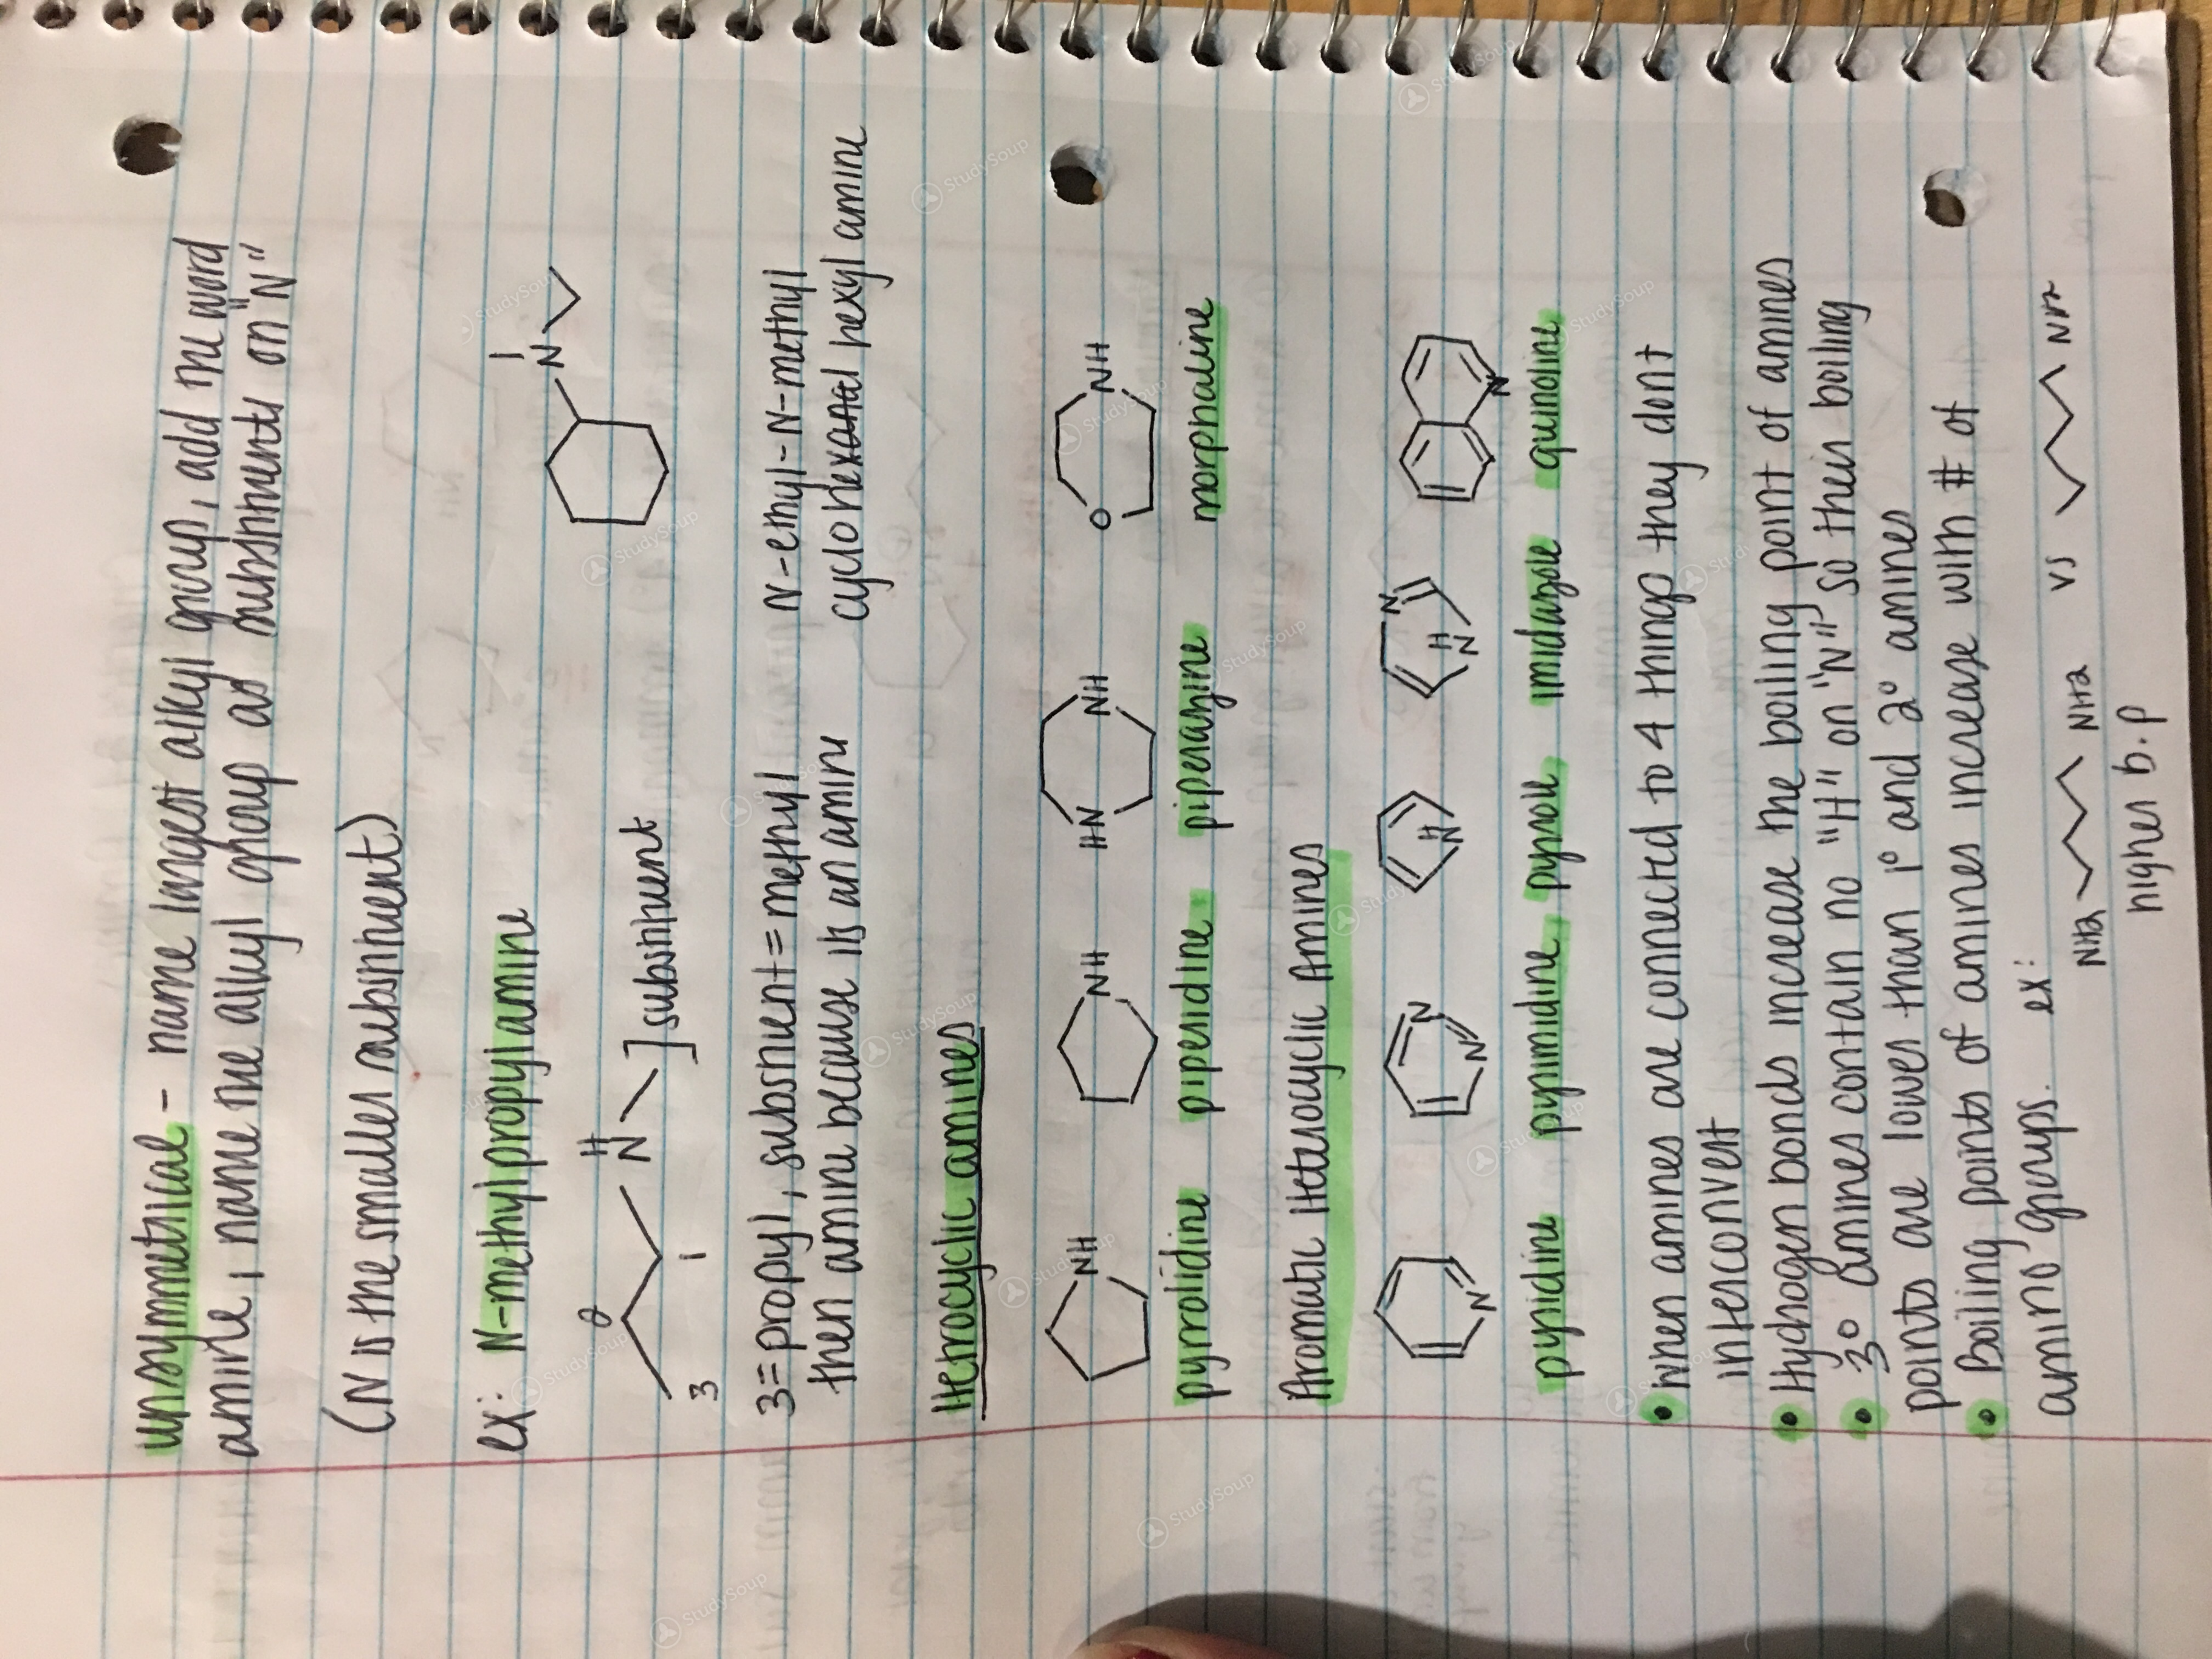 unsymmetrical - name longest alkyl group, add the word
amine, name the alkyl group as substituents on "N"
(N is the smaller substituent)
ex: N-methylpropylamine
H
N
2
1
3
] substituent
N
3 = propyl, substituent = methyl
then amine because its an amine
N-ethyl-N-methyl
cyclohexyl amine
Hetrocyclic amines
NH
NH
HN
NH
O
NH
pyrrolidine piperidine piperazine morphaline
Aromatic Heterocyclic Amines
N
N
N
H
N
N
H
N
N
pyridine pyrimidine, pyrrole imidazole quinoline
• When amines are connected to 4 things they dont
interconvert
• Hydrogen bonds increase the boiling point of amines
• 3° amines contain no "H" on "N" so their boiling
points are lower than 1° and 2° amines
• Boiling points of amines increase with # of
amino groups. ex:
NH2
NH2
vs
NH2
higher b.p
StudySoup